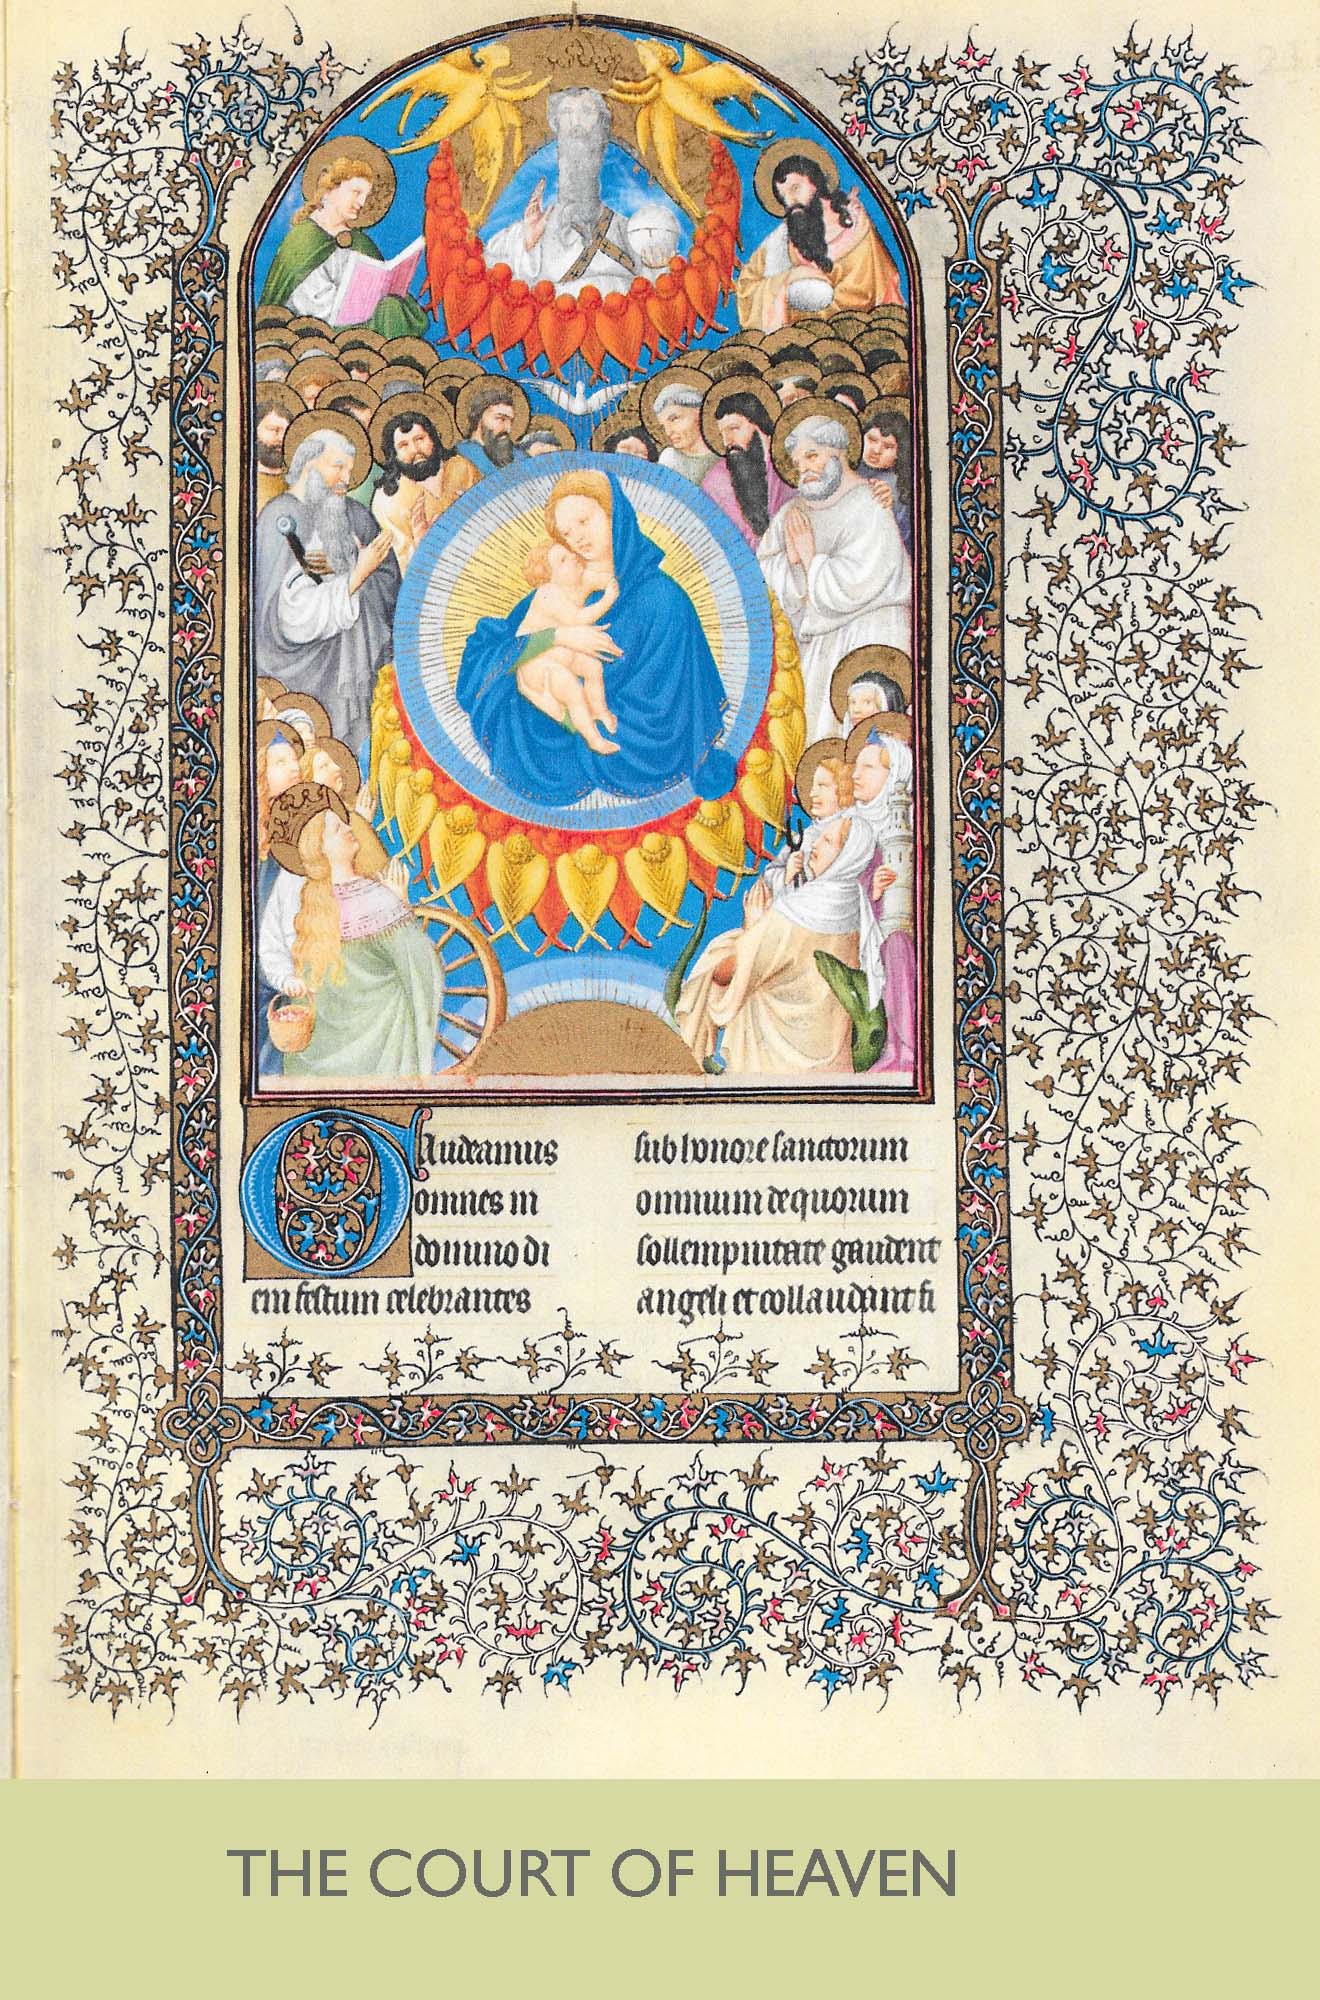 Gaudeamus
omnes in
domino di
em festum celebrantes
sub honore sanctorum
omnium de quorum
sollempnitate gaudent
angeli et collaudant fi
THE COURT OF HEAVEN